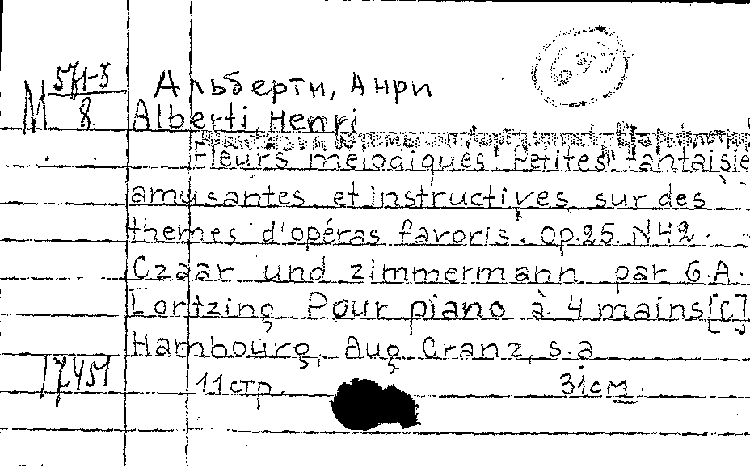 М 571-3
8
Альберти, Анри
Alberti Henri
Fleurs mélodiques Petites fantaisie
amusantes et instructives sur des
themes d'opéras favoris. Op.25 N42.
Czaar und zimmermann par G.A.
Lortzing Pour piano à 4 mains [C]
Hambourg, Aug Cranz, s.a
17451
11 стр. 31 см